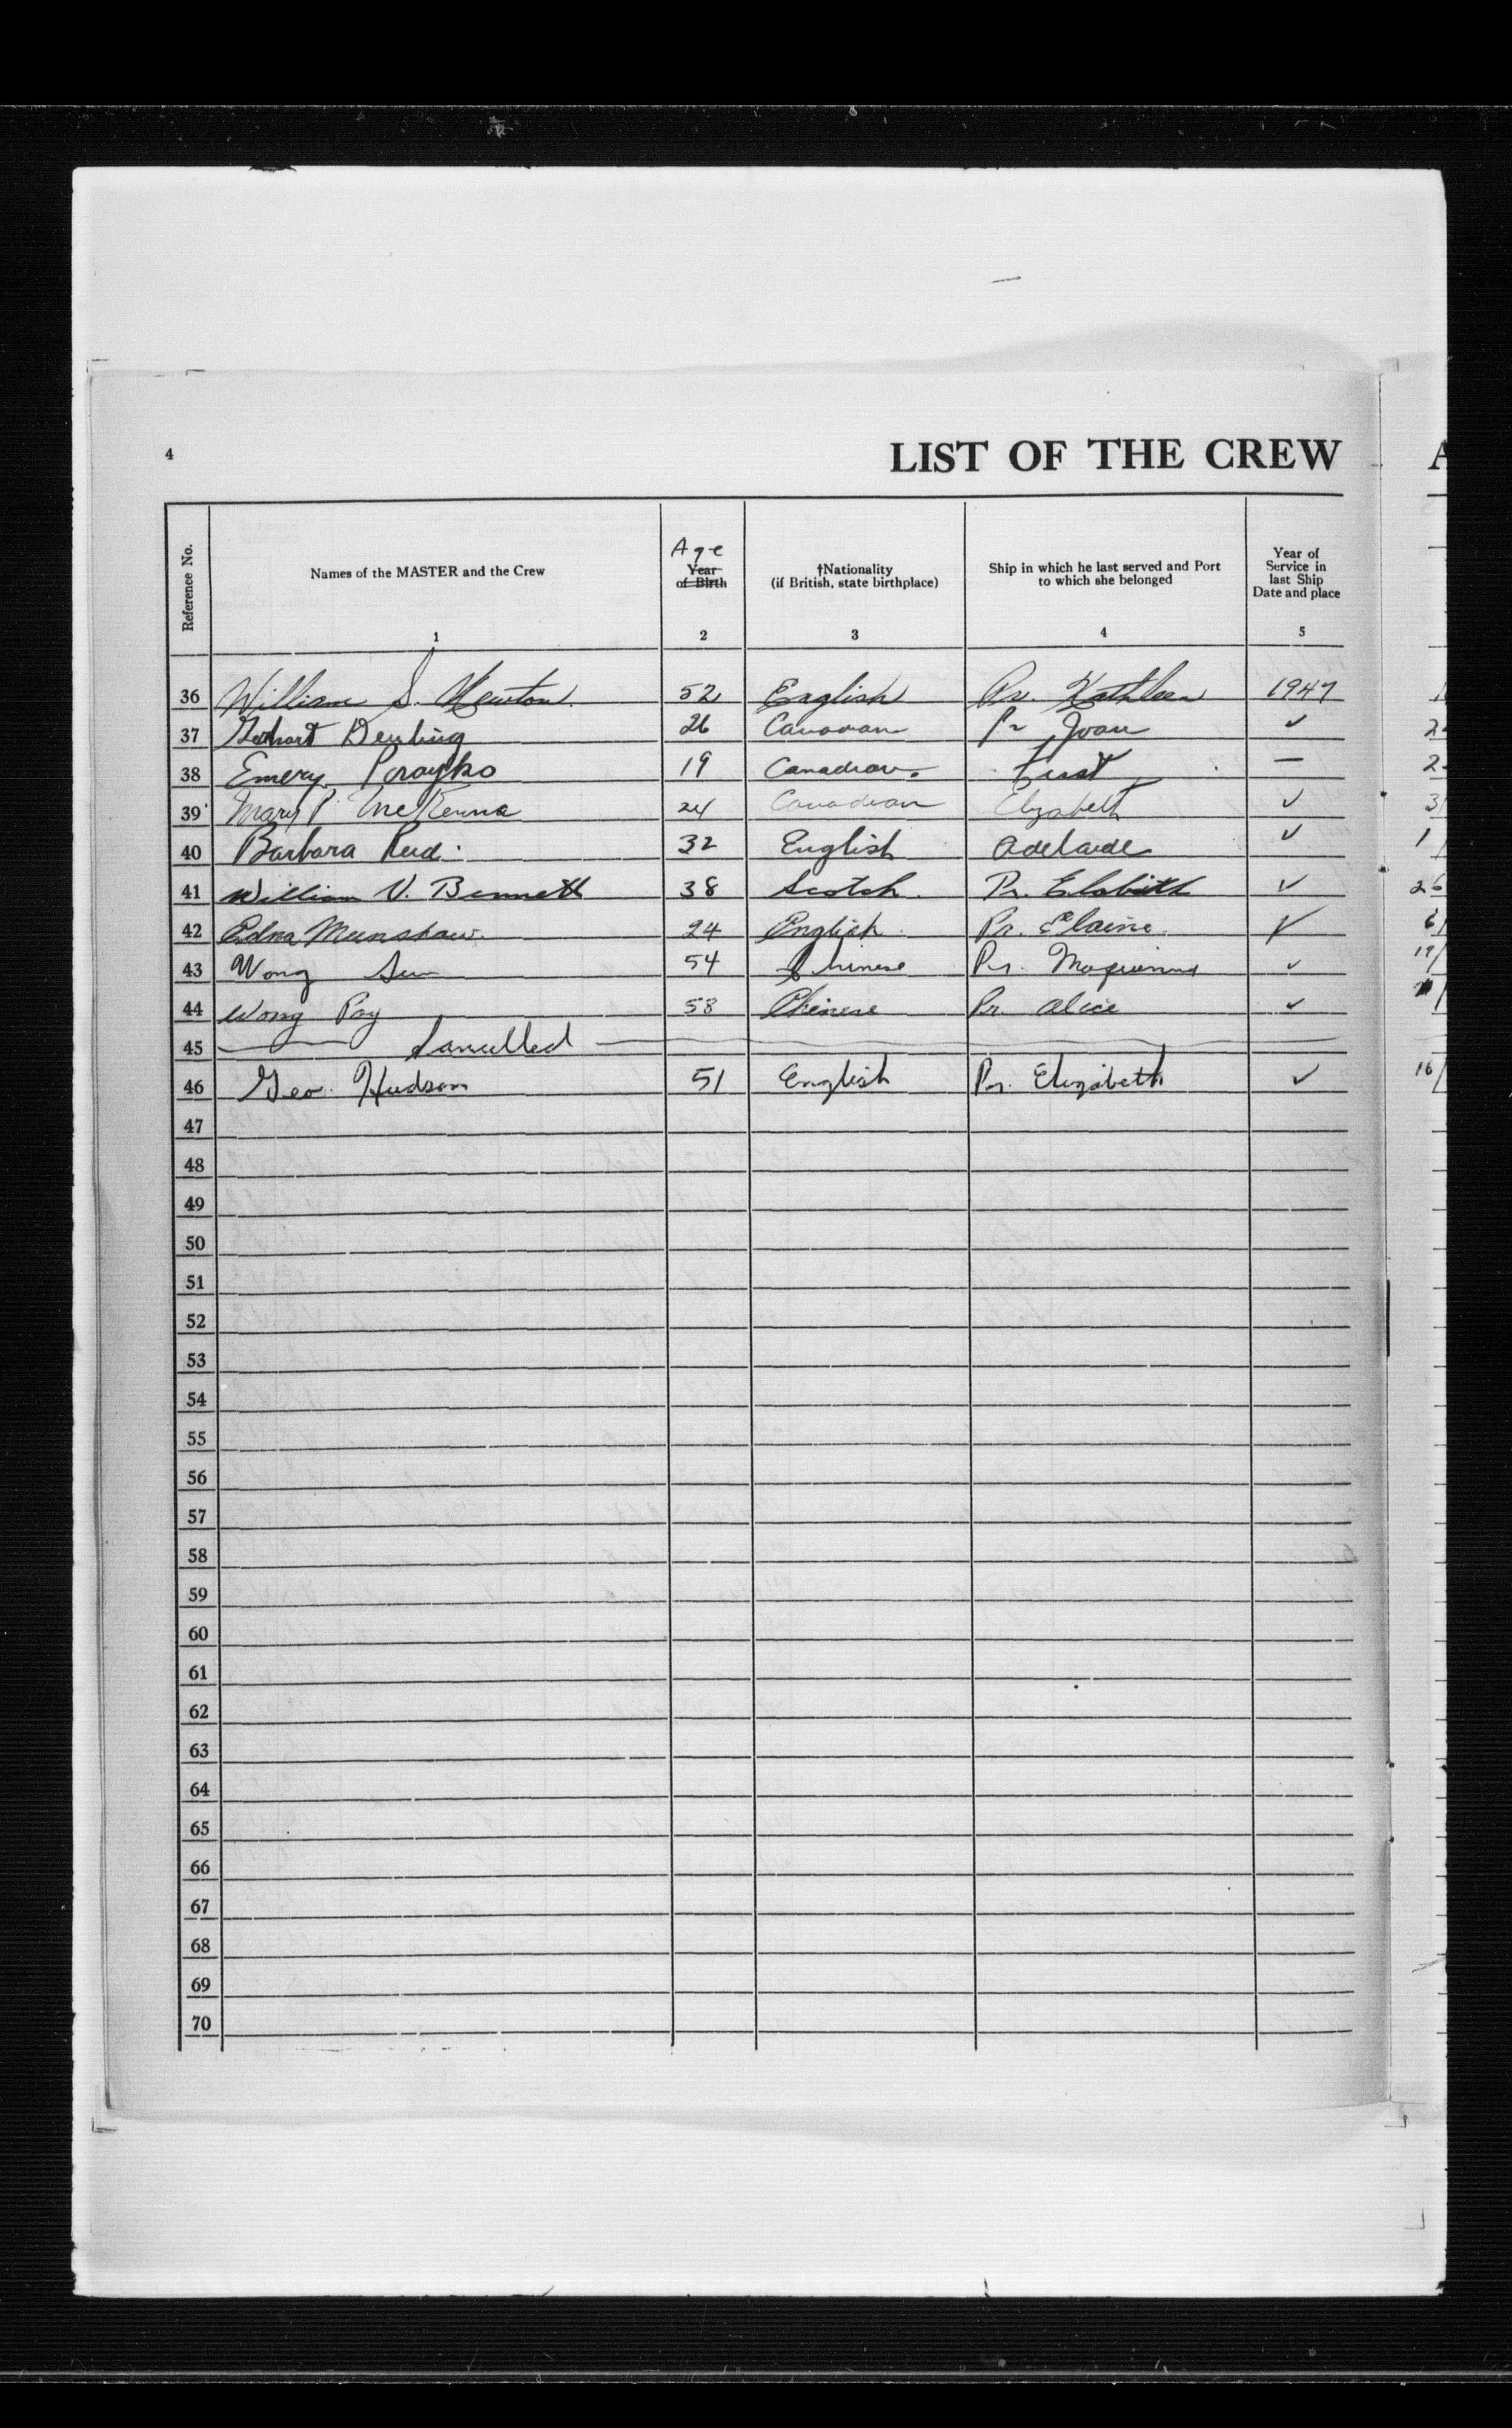 4
LIST OF THE CREW
A
Reference No.
Names of the MASTER and the Crew
1
Age
Year of Birth
2
†Nationality
(if British, state birthplace)
3
Ship in which he last served and Port
to which she belonged
4
Year of
Service in
last Ship
Date and place
5
36 William S. Newton. 52 English Pr. Kathleen 1947
37 26 Canadian Pr Joan ✓
38 Emery 19 Canadian. First —
39 Mary P. McKenna 24 Canadian Elizabeth ✓
40 Barbara Reid. 32 English Adelaide ✓
41 William V. Bennett 38 Scotch. Pr. ✓
42 Edna Munshaw. 24 English. Pr. Elaine. ✓
43 Wong 54 Chinese Pr. Maquinna ✓
44 Wong Poy 58 Chinese Pr. Alice ✓
45 Cancelled
46 Geo. Hudson 51 English Pr. Elizabeth ✓
47
48
49
50
51
52
53
54
55
56
57
58
59
60
61
62
63
64
65
66
67
68
69
70